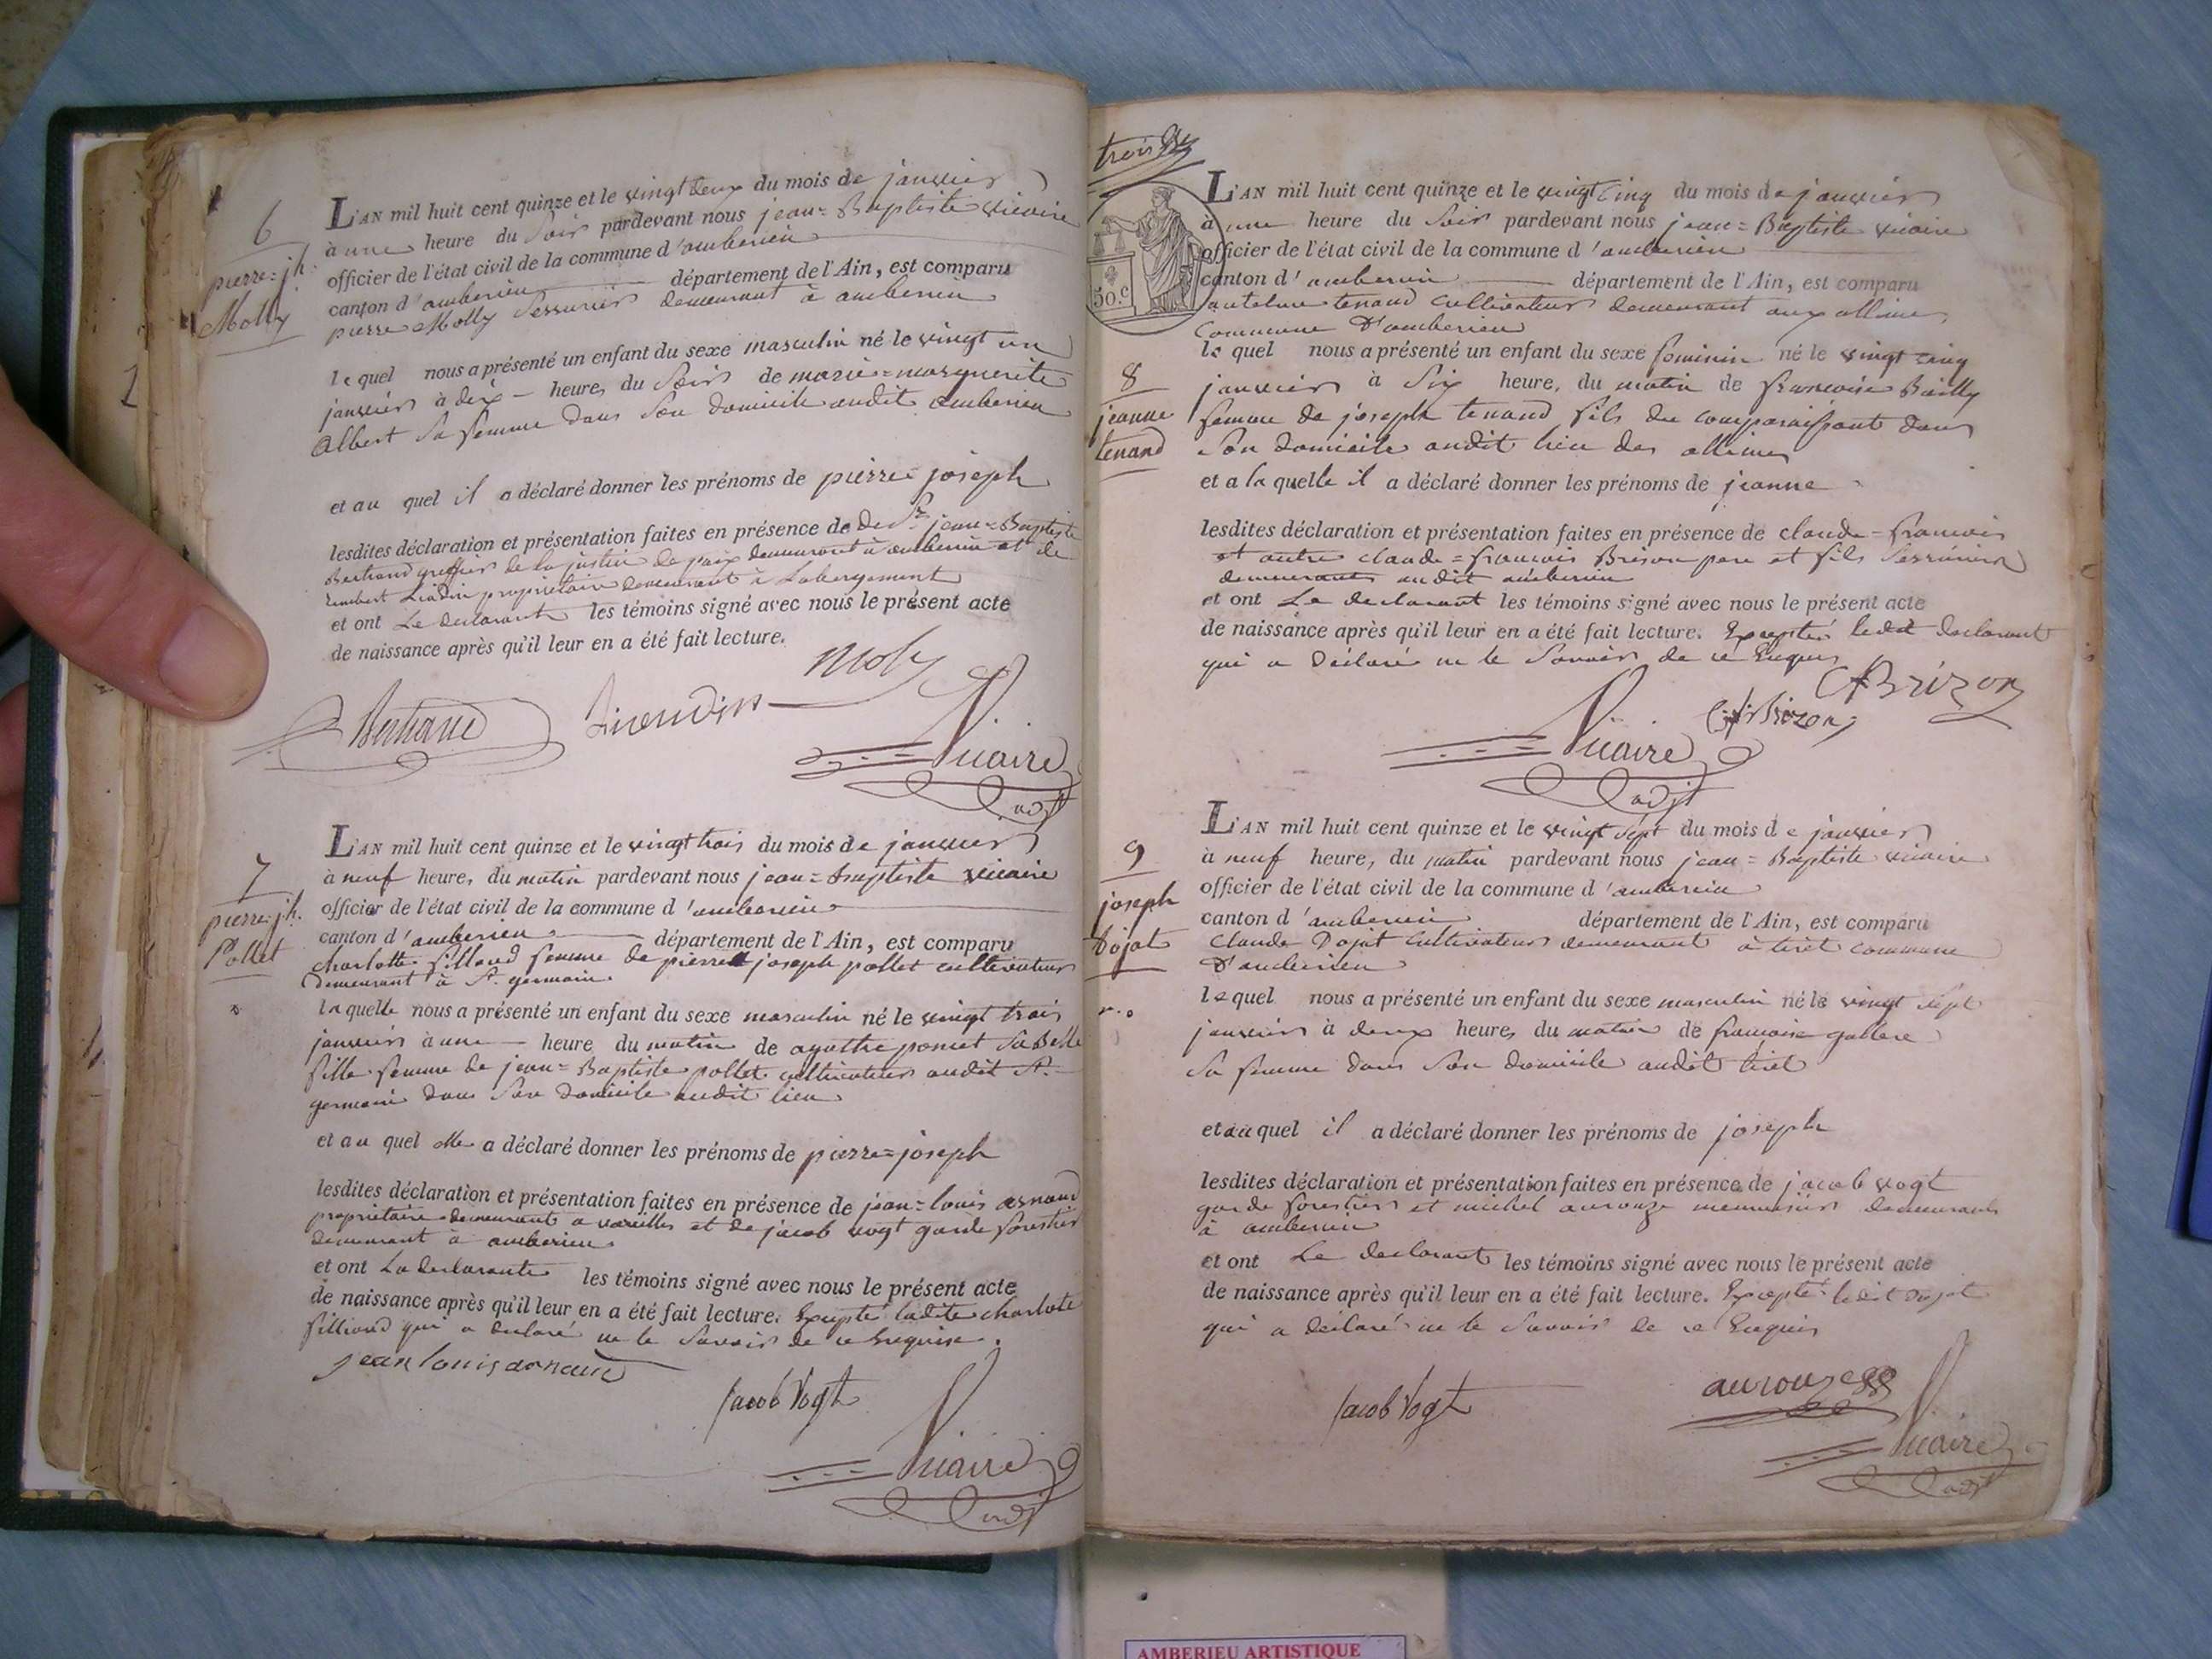 6
pierre=jh.
Molly
L'AN mil huit cent quinze et le vingt deux du mois de janvier
à une heure du Soir pardevant nous jean=Baptiste vicaire
officier de l'état civil de la commune d'amberieu
canton d'amberieu département de l'Ain, est comparu
pierre Molly Serrurier demeurant à amberieu
le quel nous a présenté un enfant du sexe masculin né le vingt un
janvier à dix heures du Soir de marie=marguerite
Albert Sa femme dans Son domicile audit amberieu
et au quel il a déclaré donner les prénoms de pierre=joseph
lesdites déclaration et présentation faites en présence de de Sr. jean=Baptiste
Bertrand greffier de la justice de paix demeurant à amberieu et de
propriétaire demeurant à Labergement
et ont Le declarant les témoins signé avec nous le présent acte
de naissance après qu'il leur en a été fait lecture.
Moly
Bertrand
Vicaire
adjt
7
pierre=jh.
Pollet
L'AN mil huit cent quinze et le vingt trois du mois de janvier
à neuf heures du matin pardevant nous jean=baptiste vicaire
officier de l'état civil de la commune d'amberieu
canton d'amberieu département de l'Ain, est comparu
charlotte Silland femme de pierre joseph pollet cultivateur
demeurant à St. germain
laquelle nous a présenté un enfant du sexe masculin né le vingt trois
janvier à une heure du matin de agathe poncet Sa Belle
fille femme de jean=Baptiste pollet cultivateur audit St.
germain dans Son domicile audit lieu
et au quel elle a déclaré donner les prénoms de pierre=joseph
lesdites déclaration et présentation faites en présence de jean=louis arnaud
propriétaire demeurant a vareilles et de jacob vogt garde forestier
demeurant à amberieu
et ont La declarante les témoins signé avec nous le présent acte
de naissance après qu'il leur en a été fait lecture. Excepté ladite charlote
qui a declaré ne le Savoir de ce Enquise.
jean louis arnaud
Jacob Vogt
Vicaire
adjt
trois
50.c
L'AN mil huit cent quinze et le vingt cinq du mois de janvier
à une heure du Soir pardevant nous jean=Baptiste vicaire
officier de l'état civil de la commune d'amberieu
canton d'amberieu département de l'Ain, est comparu
tenand cultivateur demeurant aux allimes
Commune d'amberieu
8
jeanne
tenand
le quel nous a présenté un enfant du sexe feminin né le vingt cinq
janvier à Six heure, du matin de francoise Bailly
femme de joseph tenand fils du comparaissant dans
Son domicile audit lieu des allimes
et a la quelle il a déclaré donner les prénoms de jeanne
lesdites déclaration et présentation faites en présence de claude=francois
et autre claude=francois Brison pere et fils Serruriers
demeurants audit amberieu
et ont Le declarant les témoins signé avec nous le présent acte
de naissance après qu'il leur en a été fait lecture. Excepté ledit declarant
qui a déclaré ne le Savoir de ce Enquis
Brizon
Brizon
Vicaire
adjt
9
joseph
Dojat
L'AN mil huit cent quinze et le vingt Sept du mois de janvier
à neuf heure, du matin pardevant nous jean=Baptiste vicaire
officier de l'état civil de la commune d'amberieu
canton d'amberieu département de l'Ain, est comparu
Claude Dojat cultivateur demeurant à tiret commune
d'amberieu
le quel nous a présenté un enfant du sexe masculin né le vingt Sept
janvier à deux heures du matin de françoise
Sa femme dans Son domicile audit tiret
et au quel il a déclaré donner les prénoms de joseph
lesdites déclaration et présentation faites en présence de jacob vogt
garde forestier et michel aurouze menuisier demeurants
à amberieu
et ont Le declarant les témoins signé avec nous le présent acte
de naissance après qu'il leur en a été fait lecture. Excepté ledit Dojat
qui a déclaré ne le Savoir de ce Enquis
Jacob Vogt
aurouze
Vicaire
adjt
AMBERIEU ARTISTIQUE